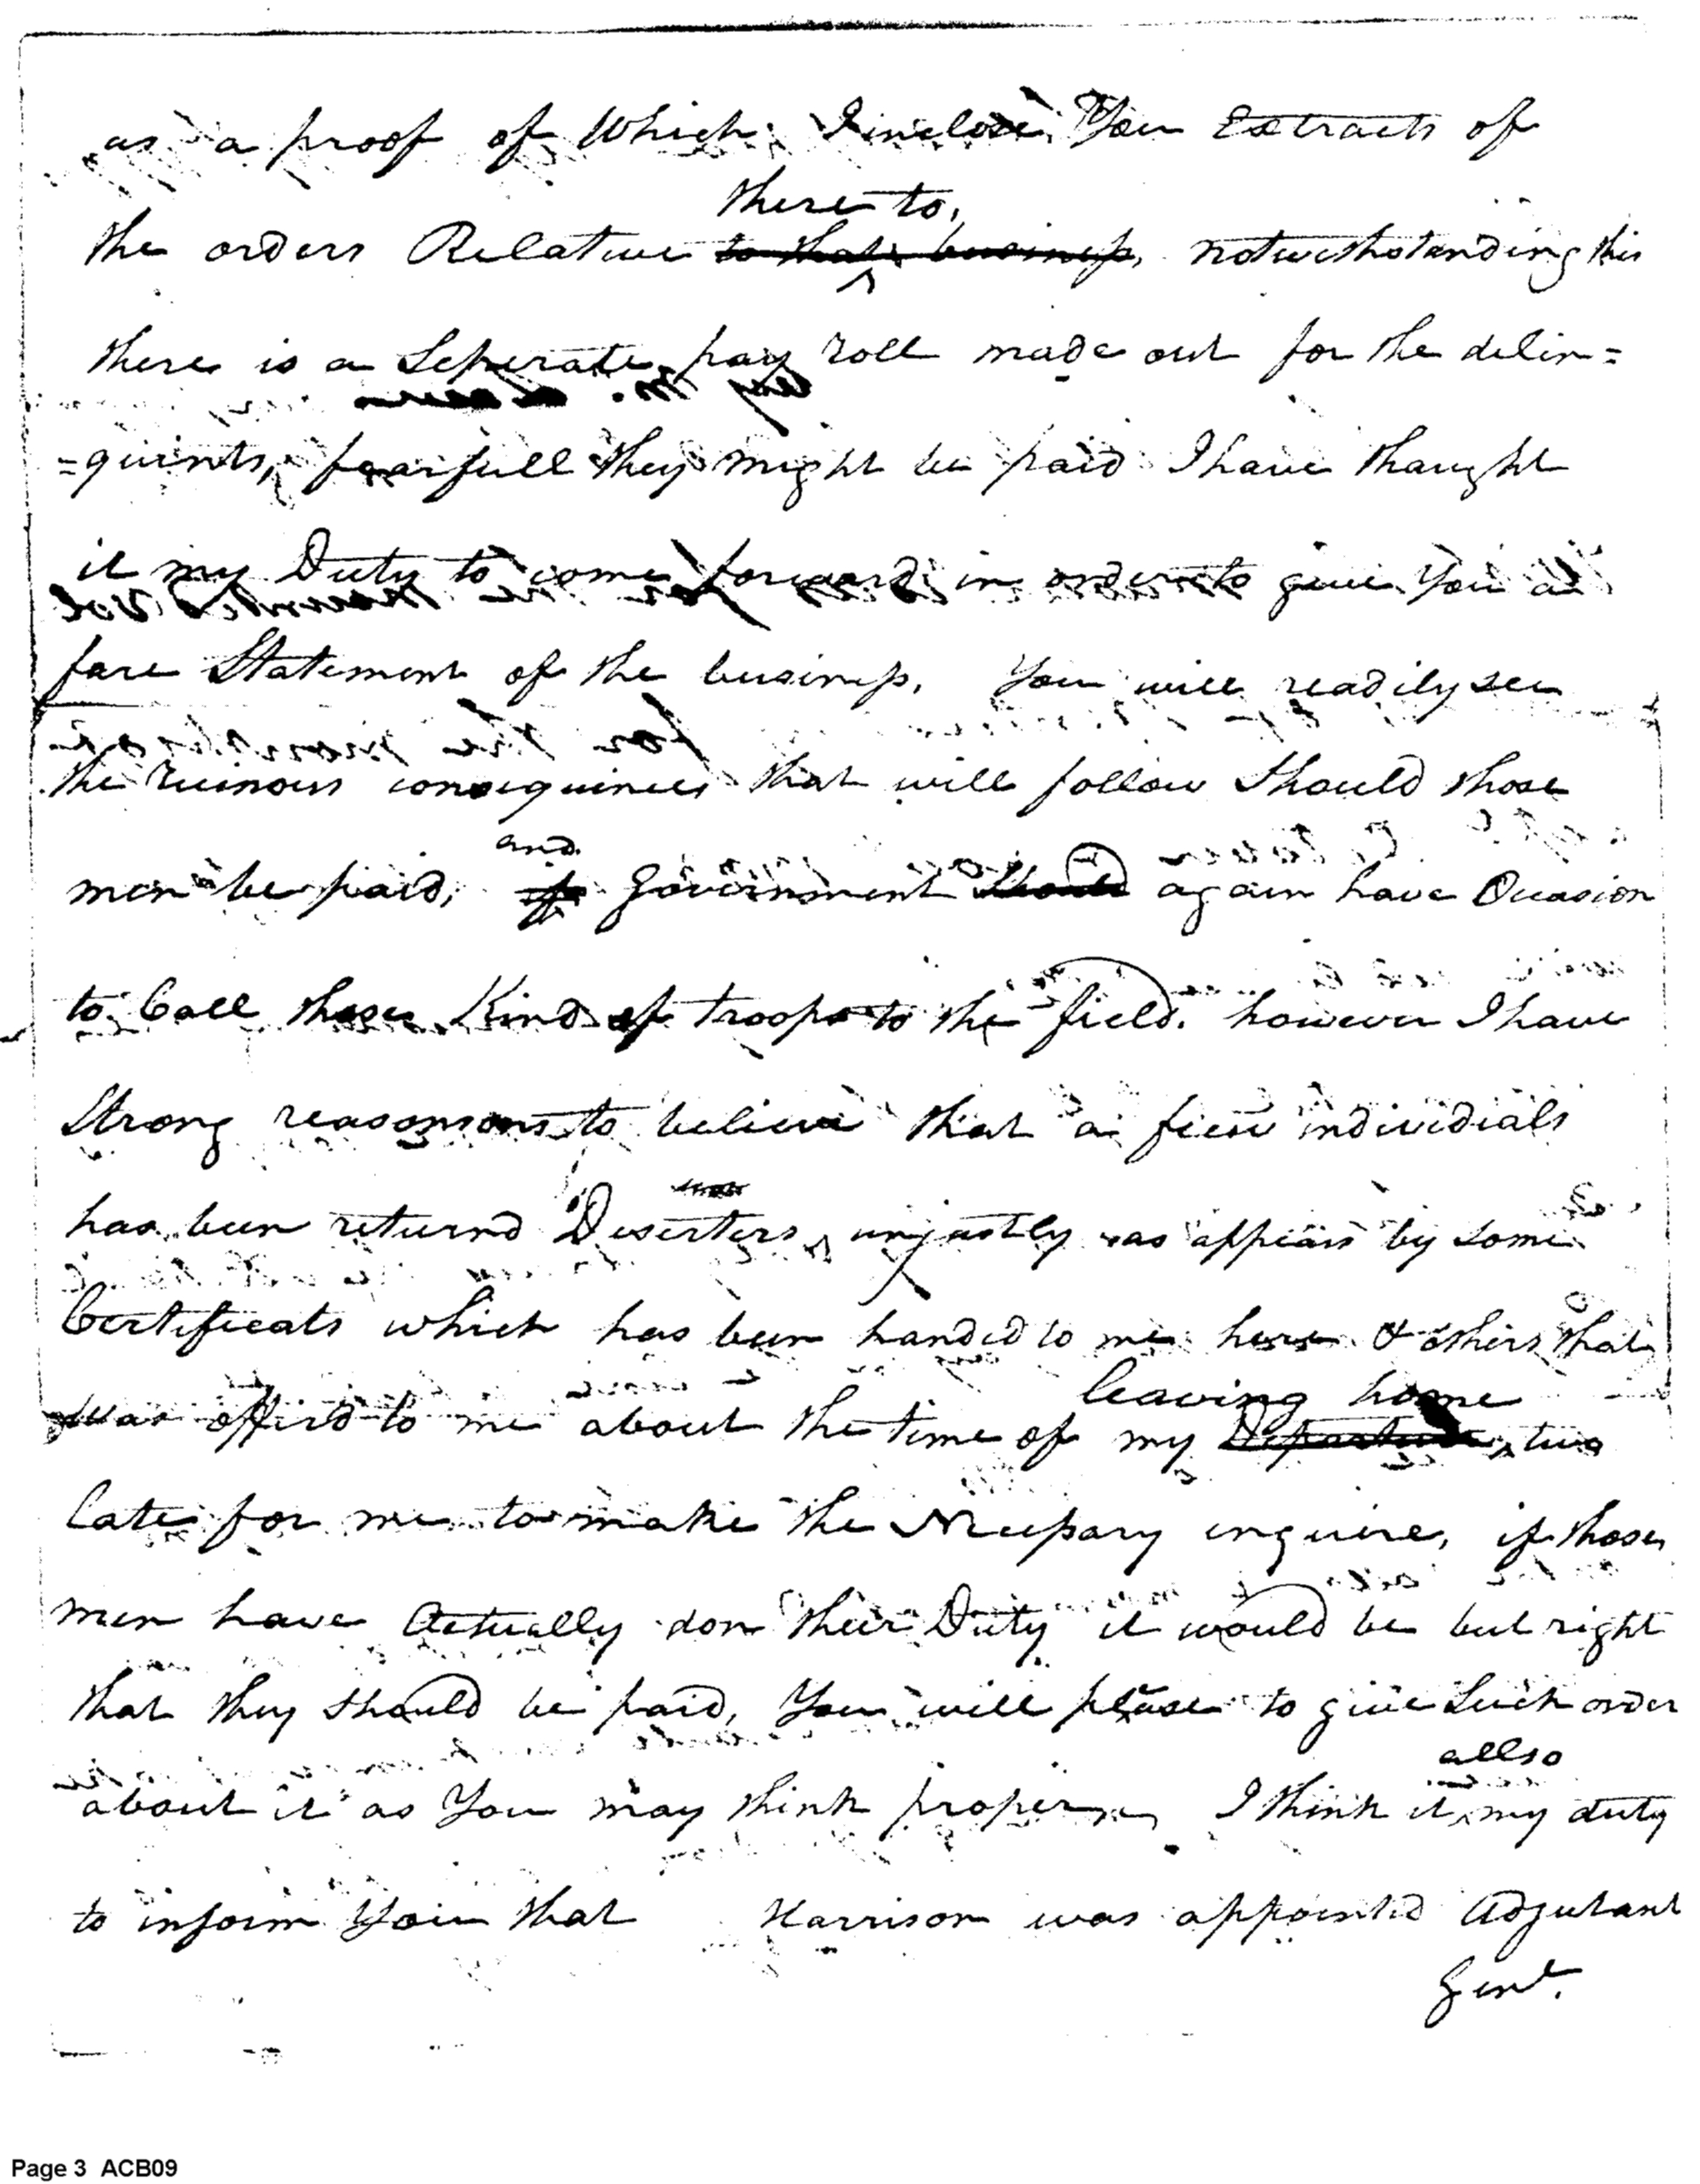 as a proof of Which I inclose You Extracts of
there to,
the orders Relative to that business, notwithstanding this
there is a Seperate pay roll made out for the delin=
=quints, fearfull they might be paid I have thaught
it my Duty to come forward in order to give You a
fare Statement of the business, You will readily see
the ruinous consequinces that will follow Should those
and
men be paid, if Government should again have Occasion
to Call these Kind of troops to the field. however I have
Strong reasonsons to believe that a few individials
has been returnd Deserters, unjustly as appears by some
Certificats which has been handed to me here & others that
leaving home
was offird to me about the time of my Departure, two
late for me to make the Necessary enquire, if those
men have Actually don their Duty it would be but right
that they should be paid, You will please to give Such order
allso
about it as You may think proper, I think it my duty
to inform You that Harrison was appointed Adjutant
Genl.
Page 3 ACB09